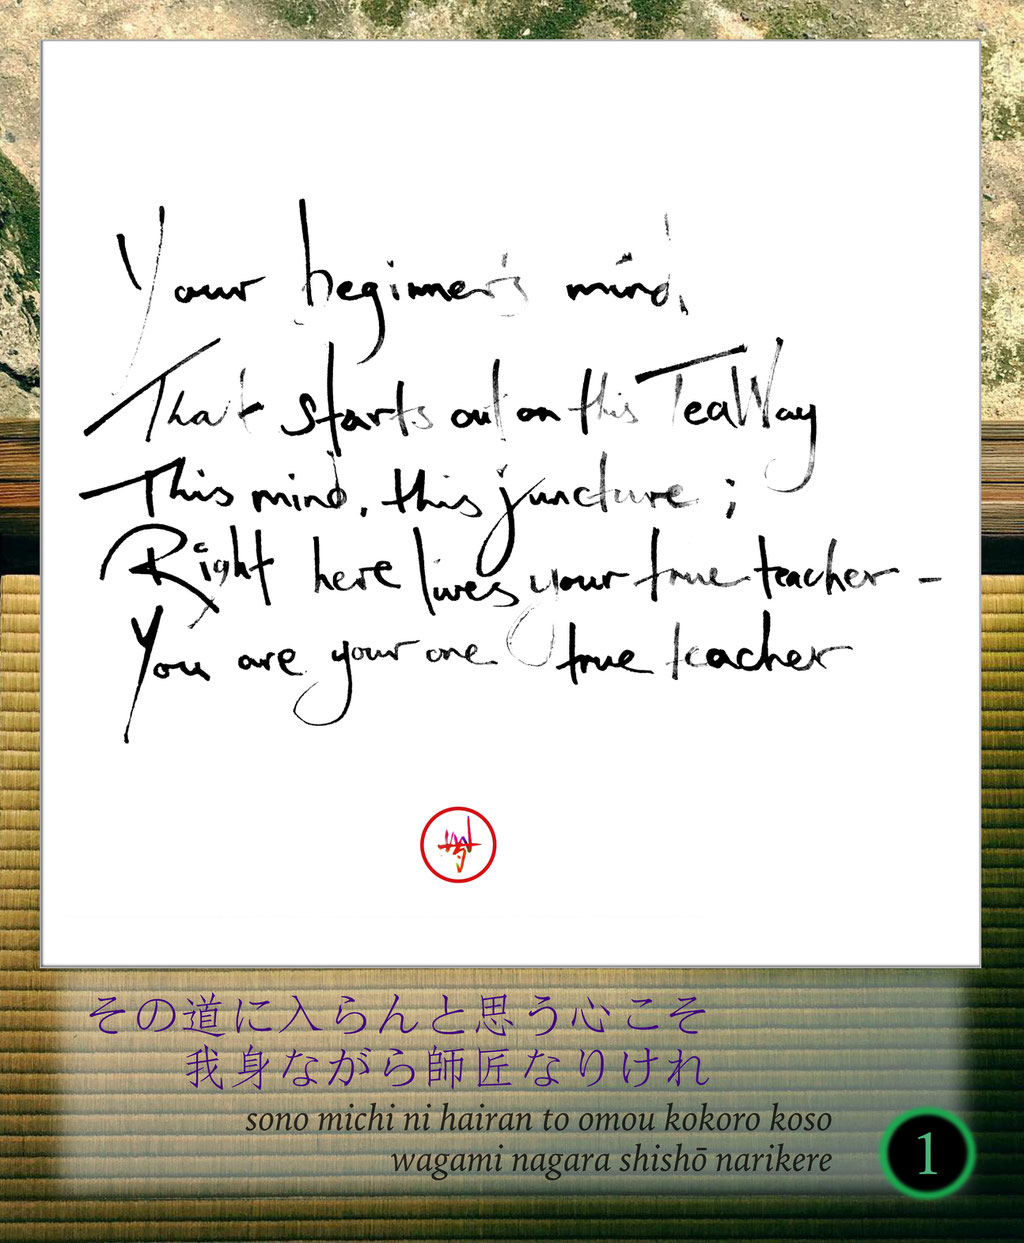 Your beginner's mind,
That starts out on this TeaWay
This mind, this juncture;
Right here lives your true teacher –
You are your one true teacher
その道に入らんと思う心こそ
我身ながら師匠なりけれ
sono michi ni hairan to omou kokoro koso
wagami nagara shishō narikere
1